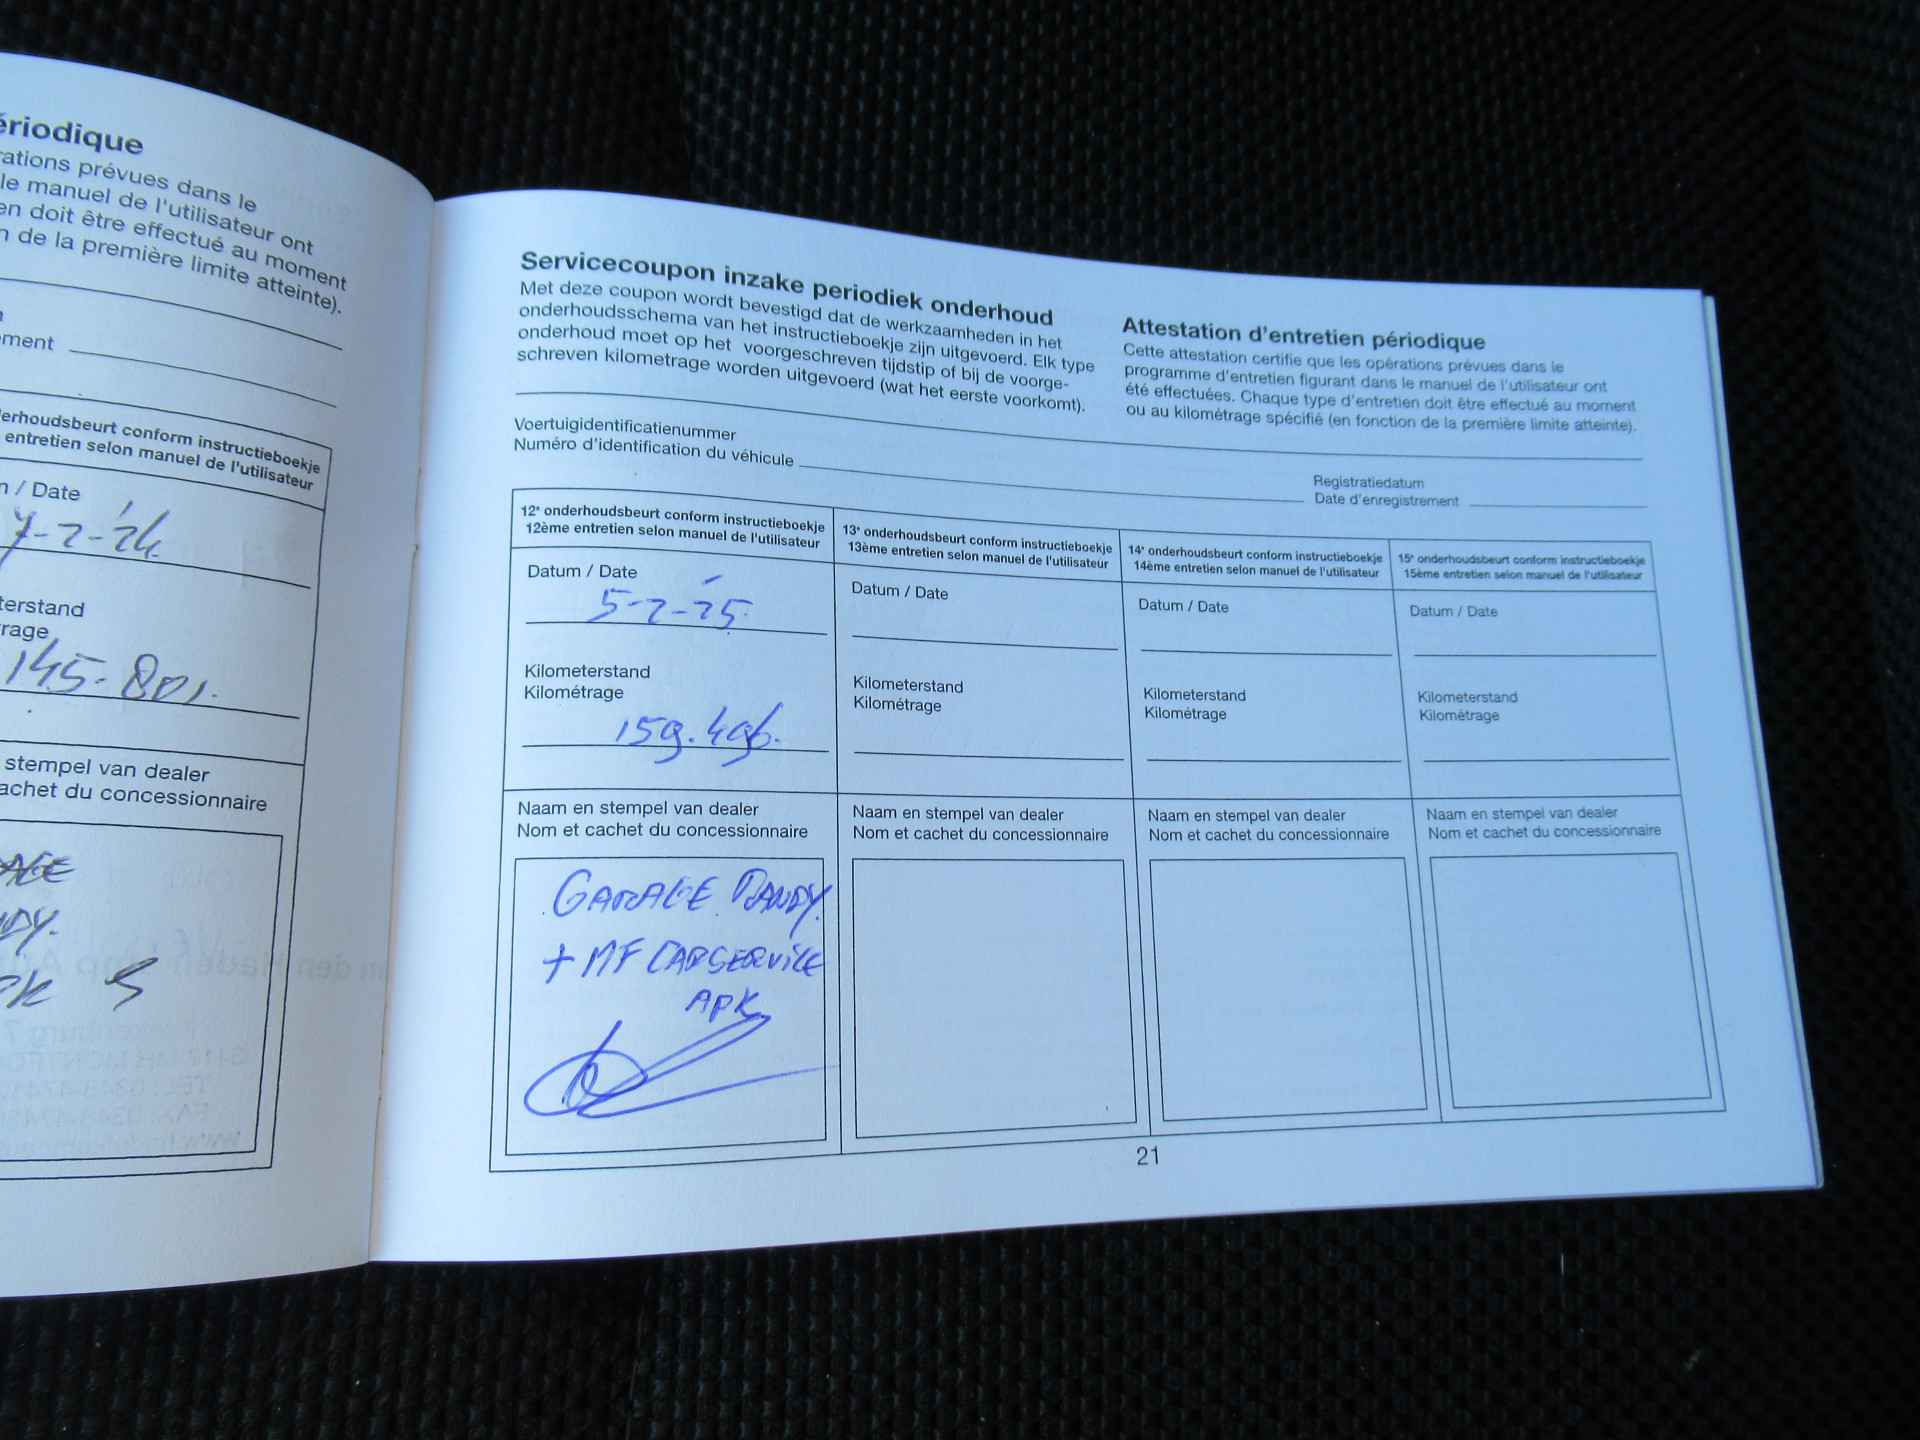 ériodique
rations prévues dans le
le manuel de l'utilisateur ont
en doit être effectué au moment
n de la première limite atteinte).
ement
derhoudsbeurt conform instructieboekje
entretien selon manuel de l'utilisateur
n / Date
7-2-'24
terstand
rage
145.801.
stempel van dealer
achet du concessionnaire
Servicecoupon inzake periodiek onderhoud
Met deze coupon wordt bevestigd dat de werkzaamheden in het
onderhoudsschema van het instructieboekje zijn uitgevoerd. Elk type
onderhoud moet op het voorgeschreven tijdstip of bij de voorge-
schreven kilometrage worden uitgevoerd (wat het eerste voorkomt).
Attestation d'entretien périodique
Cette attestation certifie que les opérations prévues dans le
programme d'entretien figurant dans le manuel de l'utilisateur ont
été effectuées. Chaque type d'entretien doit être effectué au moment
ou au kilométrage spécifié (en fonction de la première limite atteinte).
Voertuigidentificatienummer
Numéro d'identification du véhicule
Registratiedatum
Date d'enregistrement
12e onderhoudsbeurt conform instructieboekje
12ème entretien selon manuel de l'utilisateur
Datum / Date
5-2-'25.
Kilometerstand
Kilométrage
159.496.
Naam en stempel van dealer
Nom et cachet du concessionnaire
GARAGE DANDY.
+ MF CARSERVICE
APK
13e onderhoudsbeurt conform instructieboekje
13ème entretien selon manuel de l'utilisateur
Datum / Date
Kilometerstand
Kilométrage
Naam en stempel van dealer
Nom et cachet du concessionnaire
14e onderhoudsbeurt conform instructieboekje
14ème entretien selon manuel de l'utilisateur
Datum / Date
Kilometerstand
Kilométrage
Naam en stempel van dealer
Nom et cachet du concessionnaire
15e onderhoudsbeurt conform instructieboekje
15ème entretien selon manuel de l'utilisateur
Datum / Date
Kilometerstand
Kilométrage
Naam en stempel van dealer
Nom et cachet du concessionnaire
21